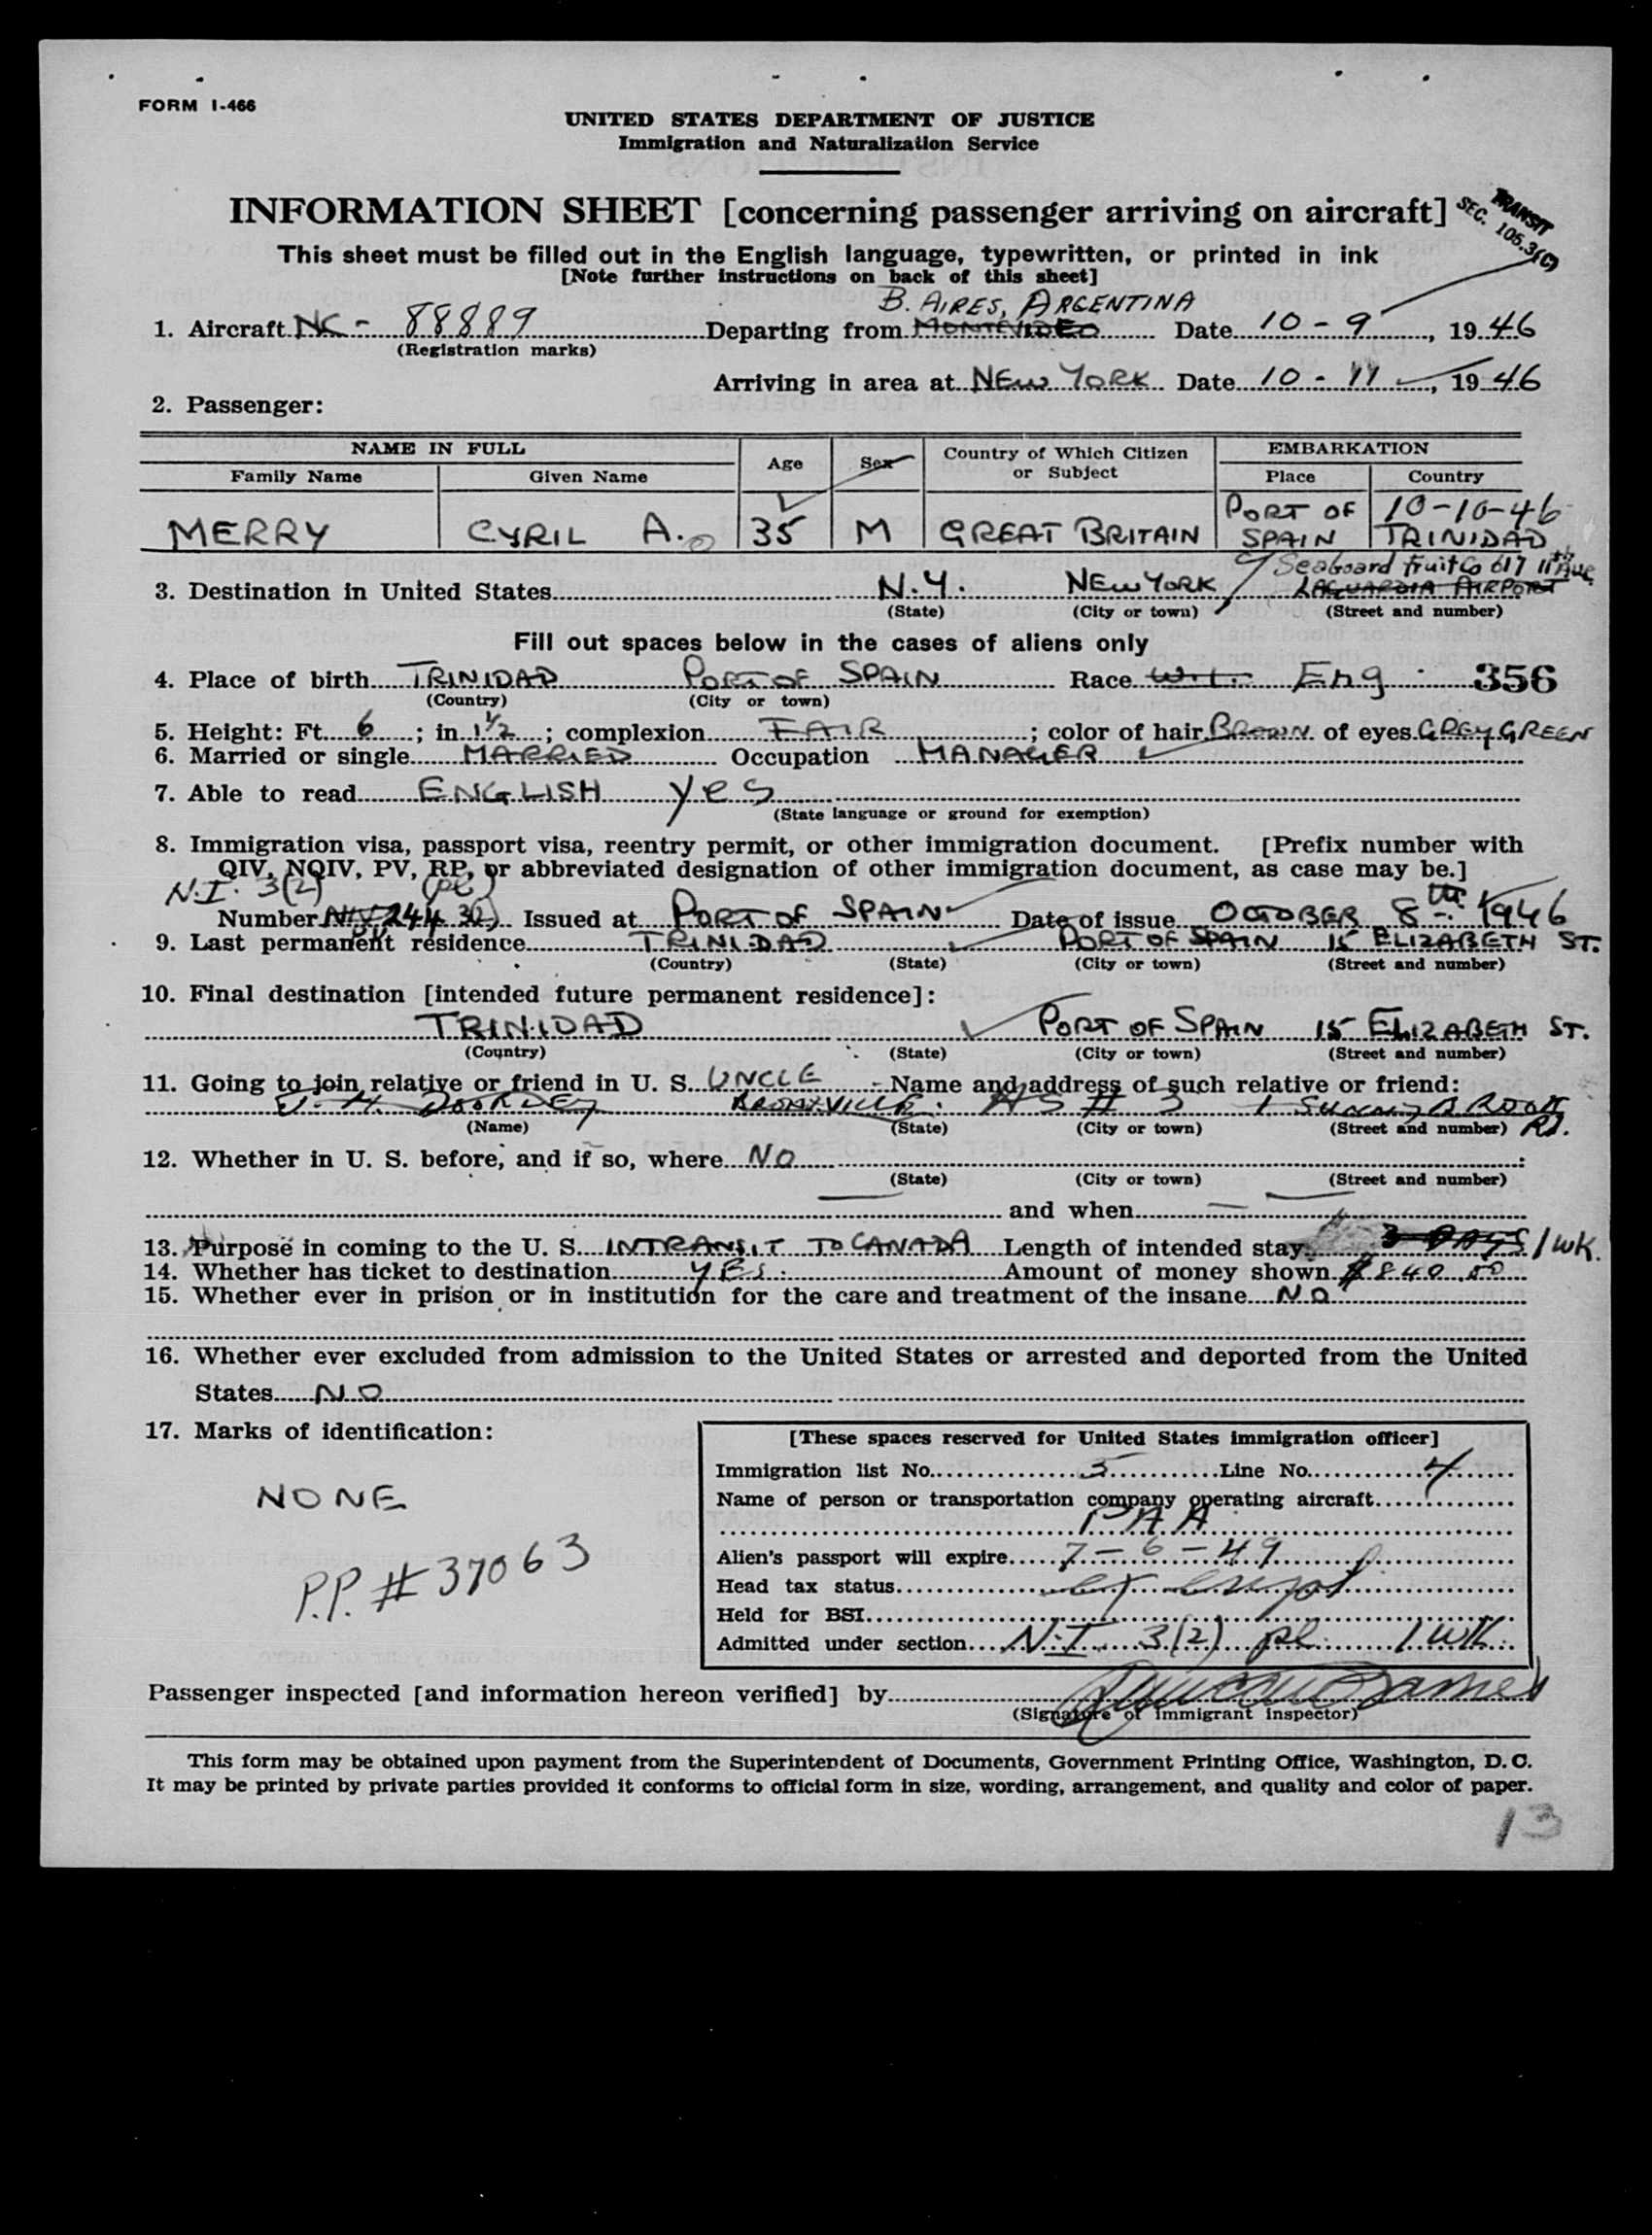 FORM I-466
UNITED STATES DEPARTMENT OF JUSTICE
Immigration and Naturalization Service
INFORMATION SHEET [concerning passenger arriving on aircraft]
TRANSIT
SEC. 106.3(C)
This sheet must be filled out in the English language, typewritten, or printed in ink
[Note further instructions on back of this sheet]
B. AIRES, ARGENTINA
1. Aircraft NC - 88889 Departing from MONTEVIDEO Date 10 - 9, 1946
(Registration marks)
Arriving in area at NEW YORK Date 10 - 11, 1946
2. Passenger:
NAME IN FULL Age Sex Country of Which Citizen or Subject EMBARKATION
Family Name Given Name Place Country
PORT OF 10-10-46
MERRY CYRIL A. 35 M GREAT BRITAIN SPAIN TRINIDAD
c/ Seaboard Fruit Co 617 11th Ave
3. Destination in United States N.Y. NEW YORK LAGUARDIA AIRPORT
(State) (City or town) (Street and number)
Fill out spaces below in the cases of aliens only
4. Place of birth TRINIDAD PORT OF SPAIN Race Eng 356
(Country) (City or town)
5. Height: Ft. 6; in. 1½; complexion FAIR; color of hair BROWN of eyes GREY GREEN
6. Married or single MARRIED Occupation MANAGER
7. Able to read ENGLISH yes
(State language or ground for exemption)
8. Immigration visa, passport visa, reentry permit, or other immigration document. [Prefix number with
QIV, NQIV, PV, RP, or abbreviated designation of other immigration document, as case may be.]
N.I. 3(2) (pl)
Number 244 Issued at PORT OF SPAIN Date of issue OCTOBER 8th 1946
9. Last permanent residence TRINIDAD PORT OF SPAIN 15 ELIZABETH ST.
(Country) (State) (City or town) (Street and number)
10. Final destination [intended future permanent residence]:
TRINIDAD PORT OF SPAIN 15 ELIZABETH ST.
(Country) (State) (City or town) (Street and number)
11. Going to join relative or friend in U. S. UNCLE Name and address of such relative or friend:
DOORLEY BRONXVILLE # 3 1 SUNNY BROOK Rd.
(Name) (State) (City or town) (Street and number)
12. Whether in U. S. before, and if so, where NO
(State) (City or town) (Street and number)
and when
13. Purpose in coming to the U. S. INTRANSIT TO CANADA Length of intended stay 3 DAYS 1 WK.
14. Whether has ticket to destination YES. Amount of money shown $840.00
15. Whether ever in prison or in institution for the care and treatment of the insane NO
16. Whether ever excluded from admission to the United States or arrested and deported from the United
States NO
17. Marks of identification:
NONE
P.P. # 37063
[These spaces reserved for United States immigration officer]
Immigration list No. 5 Line No. 4
Name of person or transportation company operating aircraft
PAA
Alien's passport will expire 7 - 6 - 49
Head tax status exempt
Held for BSI
Admitted under section N.I. 3(2) pl. 1 WK.
Passenger inspected [and information hereon verified] by
(Signature of immigrant inspector)
This form may be obtained upon payment from the Superintendent of Documents, Government Printing Office, Washington, D. C.
It may be printed by private parties provided it conforms to official form in size, wording, arrangement, and quality and color of paper.
13